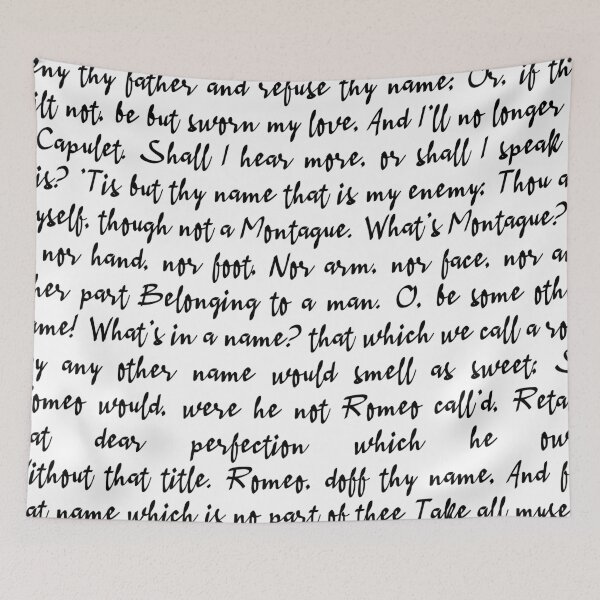 ny thy father and refuse thy name; Or, if th
ilt not, be but sworn my love, And I'll no longer
Capulet. Shall I hear more, or shall I speak
is? 'Tis but thy name that is my enemy; Thou a
yself, though not a Montague. What's Montague?
nor hand, nor foot, Nor arm, nor face, nor a
her part Belonging to a man. O, be some oth
ame! What's in a name? that which we call a ro
y any other name would smell as sweet; S
omeo would, were he not Romeo call'd, Reta
at dear perfection which he ow
ithout that title. Romeo, doff thy name, And f
at name which is no part of thee Take all myse